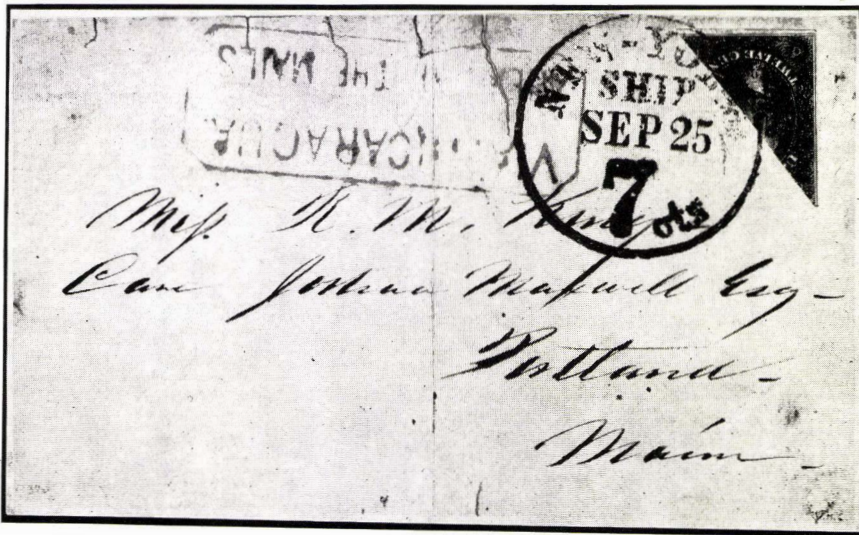 V NICARAGUA.
THE MAILS
NEW-YORK
SHIP
SEP 25
7 cts
Miss R. M.
Care Joshua Maxwell Esq-
Portland-
Maine-